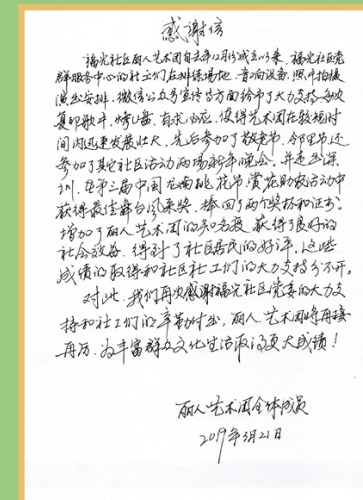 感谢信
福光社区丽人艺术团自去年12月15成立以来,福光社区党
群服务中心的社工们在排练场地、音响设备、照片拍摄
演出安排、微信公众号宣传等方面给予了大力支持,多次
复印歌片,有求必应,使得艺术团在较短时
间内迅速发展壮大,先后参加了敬老节、邻里节还
参加了其它社区活动两场新年晚会。并走出深
圳,在第三届中国龙南桃花节、赏花助农活动中
获得最佳舞台风采奖,捧回了两个奖杯和证书。
增加了丽人艺术团的知名度,获得了良好的
社会效益,得到了社区居民的好评,这些
成绩的取得和社区社工们的大力支持分不开。
对此,我们再次感谢福光社区党委的大力支
持和社工们的辛勤付出,丽人艺术团将再接
再厉,为丰富群众文化生活取得更大成绩!
丽人艺术团全体成员
2019年3月21日